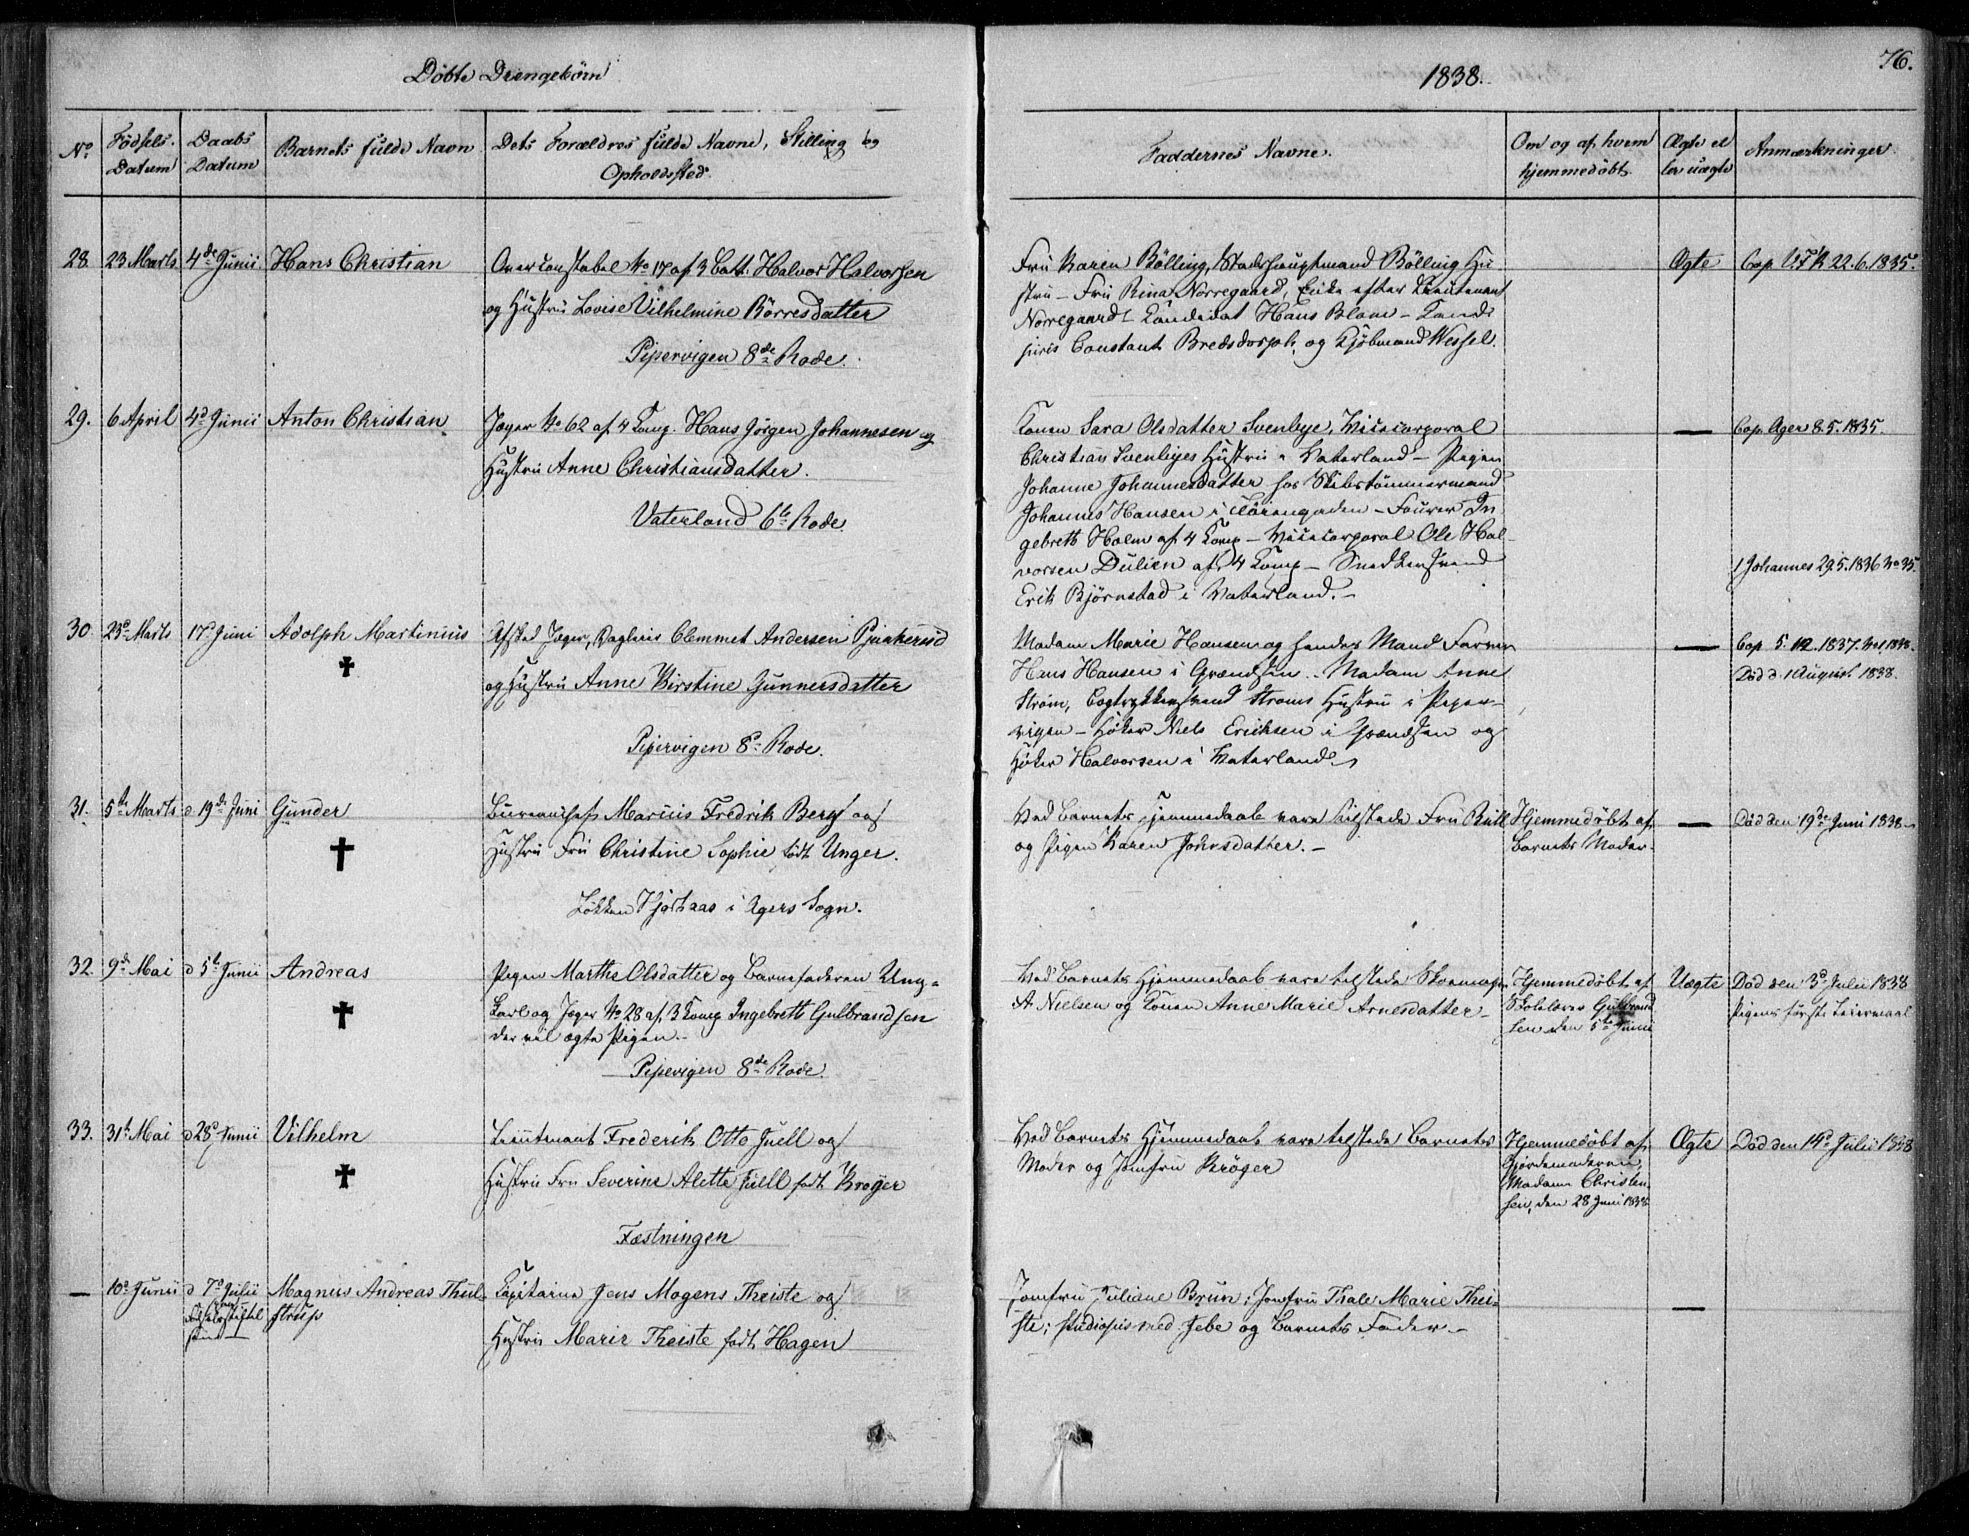 Döbte Drengebörn
1838.
76.
No.
Födsels-
Datum
Daabs
Datum
Barnets fulde Navn
Dets Forældres fulde Navne, Stilling og
Opholdssted.
Faddernes Navne.
Om og af hvem
hjemmedöbt.
Ægte el
ler uægte
Anmærkninger.
28. 23 Marts 4de Junii Hans Christian
Overconstabel No 17 af 3 Batt. Halvor Halvorsen
og Hustru Lovise Vilhelmine Börresdatter
Pipervigen 8de Rode.
Fru Karen Bölling, Stadshauptmand Bölling Hu
stru - Fru Rina Norregaard, Enke efter Lieutenant
Norregaard - Candidat Hans Blom - Cand:
juris Constant Bredsdorph, og Kjöbmand Wessel.
Ægte
Cop. V.F.K 22.6.1835.
29. 6 April 4d Junii Anton Christian
Jæger No 62 af 4 Komp. Hans Jörgen Johannesen og
Hustru Anne Christiansdatter.
Vaterland 6te Rode
Konen Sara Olsdatter Svenbye, Vicecorporal
Christian Svenbyes Hustru i Vaterland - Pigen
Johanne Johannesdatter hos Skibstömmermand
Johannes Hansen i Lörengaden - Fourer In
gebreth Holm af 4 Komp - Vicecorporal Ole Hal-
vorsen Dulien af 4 Komp - Snedkersvend
Erik Björnstad i Vaterland. -
—
Cop. Ager 8.5.1835.
1 Johannes 29.5.1836 No 35.
30 23d Marts 17d Juni Adolph Martinius
Afsked Jæger, Dagleier Clemmet Andersen
og Hustru Anne Kirstine Gunnersdatter
Pipervigen 8d Rode.
Madam Marie Hansen og hendes Mand Farver
Hans Hansen i Grændsen. - Madam Anne
Ström, Bogtrykkersvend Ströms Hustru i Piper-
vigen - Höker Niels Eriksen i Grændsen og
Höker Halvorsen i Vaterland.
—
Cop. 5. 12. 1837.
Död d. 1 August 1838.
31. 5te Marts d 19de Juni Gunder
Bureauchef Marius Fredrik Berg og
Hustru Fru Christine Sophie födt Unger.
Lökken i Agers Sogn.
Ved Barnets Hjemmedaab vare tilstede Fru Bull
og Pigen Karen Johnsdatter. -
Hjemmedöbt af
Barnets Moder.
—
Död den 19de Juni 1838.
32. 9de Mai d 5te Junii Andreas
Pigen Marthe Olsdatter og Barnefaderen Ung-
karl og Jæger No 28 af 3 Komp Ingebrett Gulbrandsen
der vil ægte Pigen. -
Pipervigen 8de Rode.
Ved Barnets Hjemmedaab vare tilstede
A Nielsen og Konen Anne Marie Arnesdatter -
Hjemmedöbt af
Skolelærer Gulbrand
sen den 5te Junii
Uægte
Död den 3d Julii 1838
Pigens förste Leiermaal
33. 31te Mai d 28d Junii Vilhelm
Lieutnant Frederik Otto Juell og
Hustru Fru Severine Alette Juell födt Kröger
Fæstningen
Ved Barnets Hjemmedaab vare tilstede Barnets
Moder og Jomfru Kröger
Hjemmedöbt af
Gjordemoderen,
Madam Christen-
sen, den 28 Juni 1838
Ægte
Död den 14d Julii 1838
— 10d Junii d 7d Julii Magnus Andreas Thul-
strup
Capitaine Jens Mogens Theiste og
Hustru Marie Theiste födt Hagen
Jomfru Juliane Brun; Jomfru Thale Marie Thei-
ste; Studiosus med Jebe og Barnets Fader. -
—